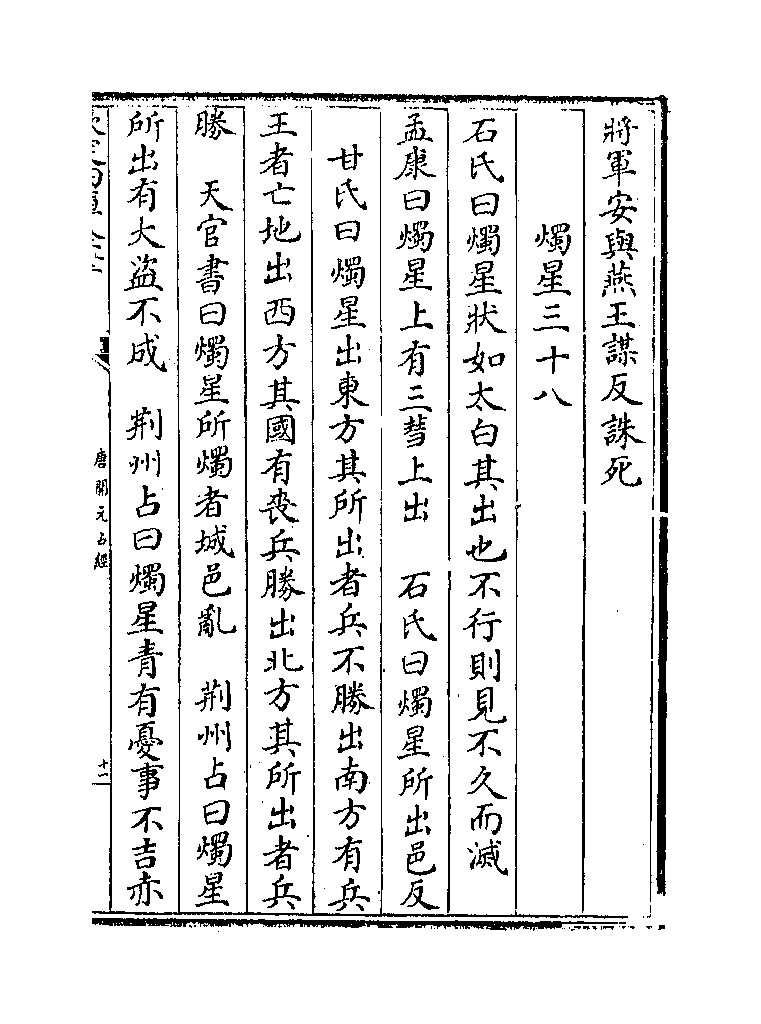 將軍安與燕王謀反誅死
燭星三十八
石氏曰燭星狀如太白其出也不行則見不久而滅
孟康曰燭星上有三彗上出　石氏曰燭星所出邑反
甘氏曰燭星出東方其所出者兵不勝出南方有兵
王者亡地出西方其國有喪兵勝出北方其所出者兵
勝　天官書曰燭星所燭者城邑亂　荆州占曰燭星
所出有大盜不成　荆州占曰燭星青有憂事不吉赤
唐開元占經
十一